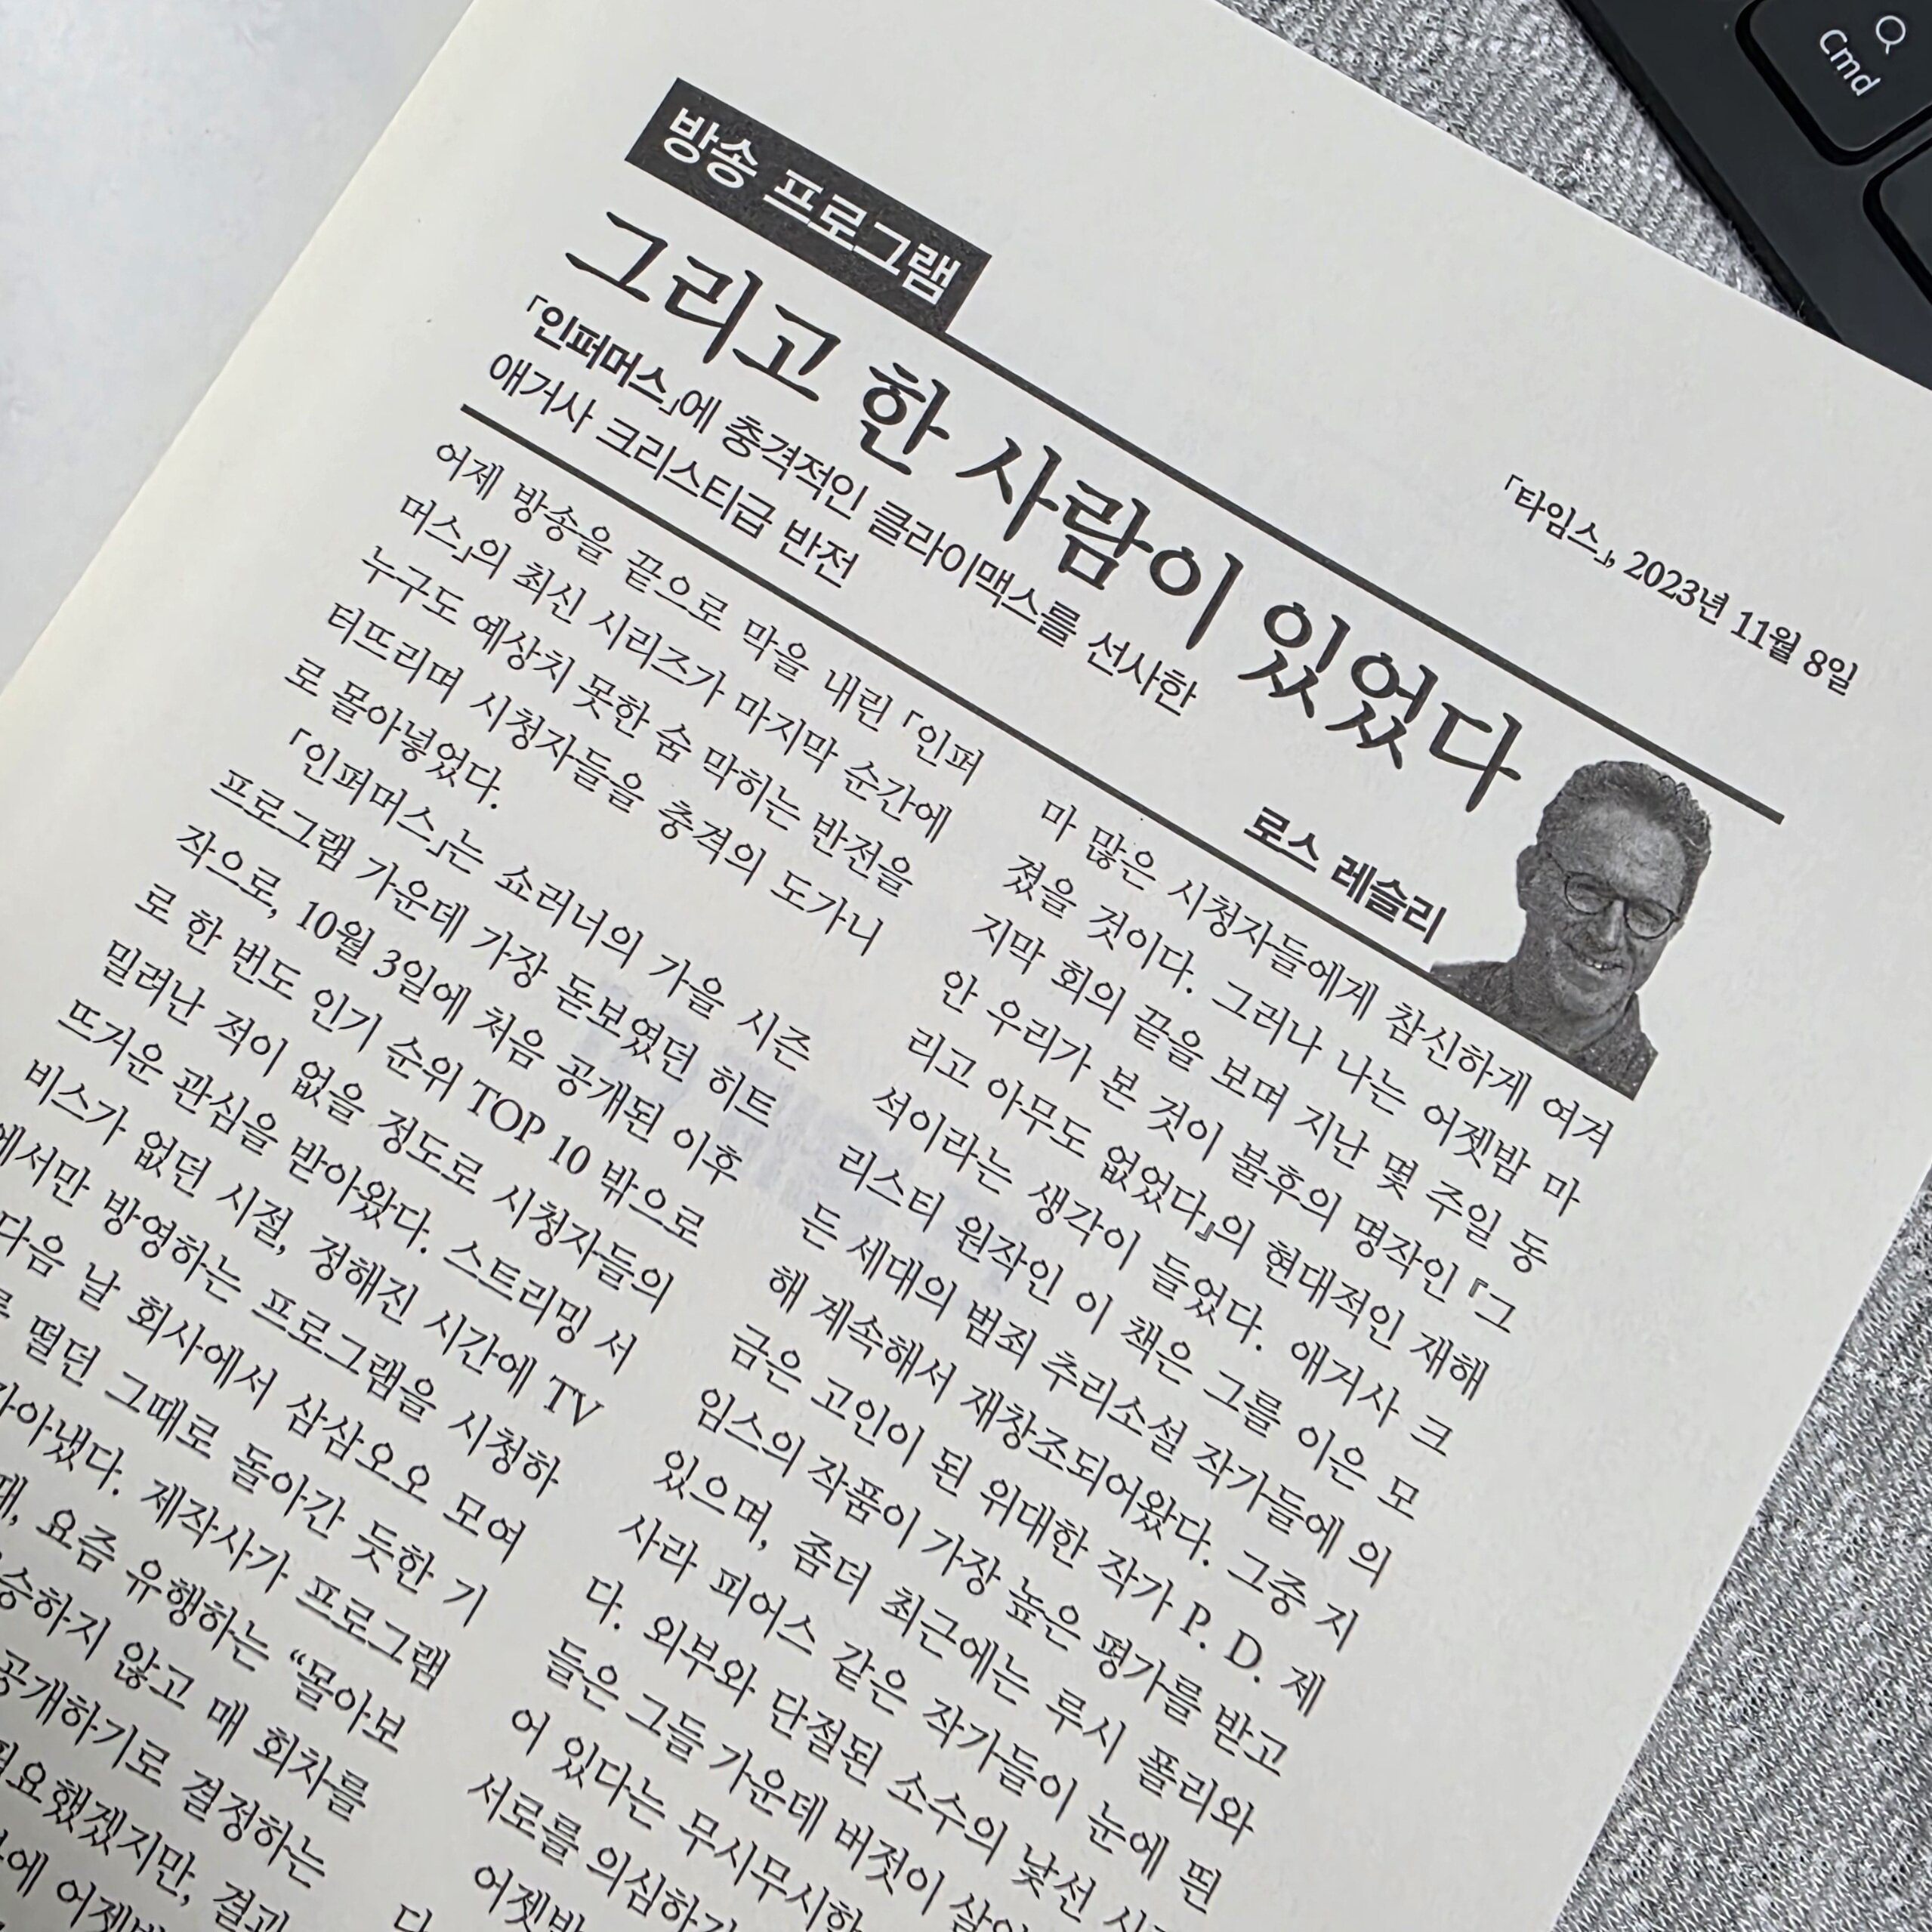 Cmd
「타임스」, 2023년 11월 8일
방송 프로그램
그리고 한 사람이 있었다
「인퍼머스」에 충격적인 클라이맥스를 선사한
애거사 크리스티급 반전
로스 레슬리
어제 방송을 끝으로 막을 내린 「인퍼
머스」의 최신 시리즈가 마지막 순간에
누구도 예상치 못한 숨 막히는 반전을
터뜨리며 시청자들을 충격의 도가니
로 몰아넣었다.
「인퍼머스」는 쇼러너의 가을 시즌
프로그램 가운데 가장 돋보였던 히트
작으로, 10월 3일에 처음 공개된 이후
로 한 번도 인기 순위 TOP 10 밖으로
밀려난 적이 없을 정도로 시청자들의
뜨거운 관심을 받아왔다. 스트리밍 서
비스가 없던 시절, 정해진 시간에 TV
에서만 방영하는 프로그램을 시청하
다음 날 회사에서 삼삼오오 모여
떨던 그때로 돌아간 듯한 기
제작사가 프로그램
요즘 유행하는 “몰아보
않고 매 회차를
공개하기로 결정하는
결과
마 많은 시청자들에게 참신하게 여겨
졌을 것이다. 그러나 나는 어젯밤 마
지막 회의 끝을 보며 지난 몇 주일 동
안 우리가 본 것이 불후의 명작인 『그
리고 아무도 없었다』의 현대적인 재해
석이라는 생각이 들었다. 애거사 크
리스티 원작인 이 책은 그를 이은 모
든 세대의 범죄 추리소설 작가들에 의
해 계속해서 재창조되어왔다. 그중 지
금은 고인이 된 위대한 작가 P. D. 제
임스의 작품이 가장 높은 평가를 받고
있으며, 좀더 최근에는 루시 폴리와
사라 피어스 같은 작가들이 눈에 띈
다. 외부와 단절된 소수의 낯선
들은 그들 가운데 버젓이
어 있다는
서로를